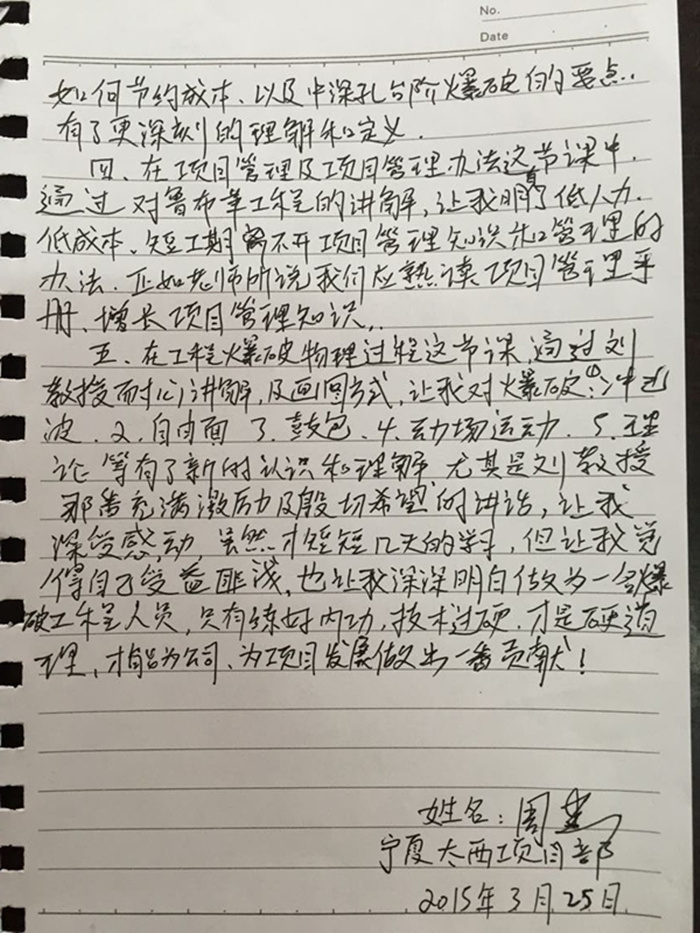 No.
Date
如何节约成本、以及中深孔台阶爆破的要点、
有了更深刻的理解和定义.
四、在项目管理及项目管理办法这节课中,
通过对鲁布革工程的讲解,让我明了低人力、
低成本、短工期离不开项目管理知识和管理的
办法.正如老师所说我们应熟读项目管理手
册、增长项目管理知识.
五、在工程爆破物理过程这节课,通过刘
教授耐心讲解,及画图方式,让我对爆破①冲击
波.2.自由面 3.鼓包.4.动场运动.5.理
论等有了新的认识和理解 尤其是刘教授
那番充满激历及殷切希望的讲话,让我
深受感动,虽然才短短几天的学习,但让我觉
得自己受益匪浅,也让我深深明白做为一名爆
破工程人员,只有练好内功,技术过硬.才是硬道
理,才能为公司、为项目发展做出一番贡献!
姓名:周
宁夏太西项目部
2015年3月25日